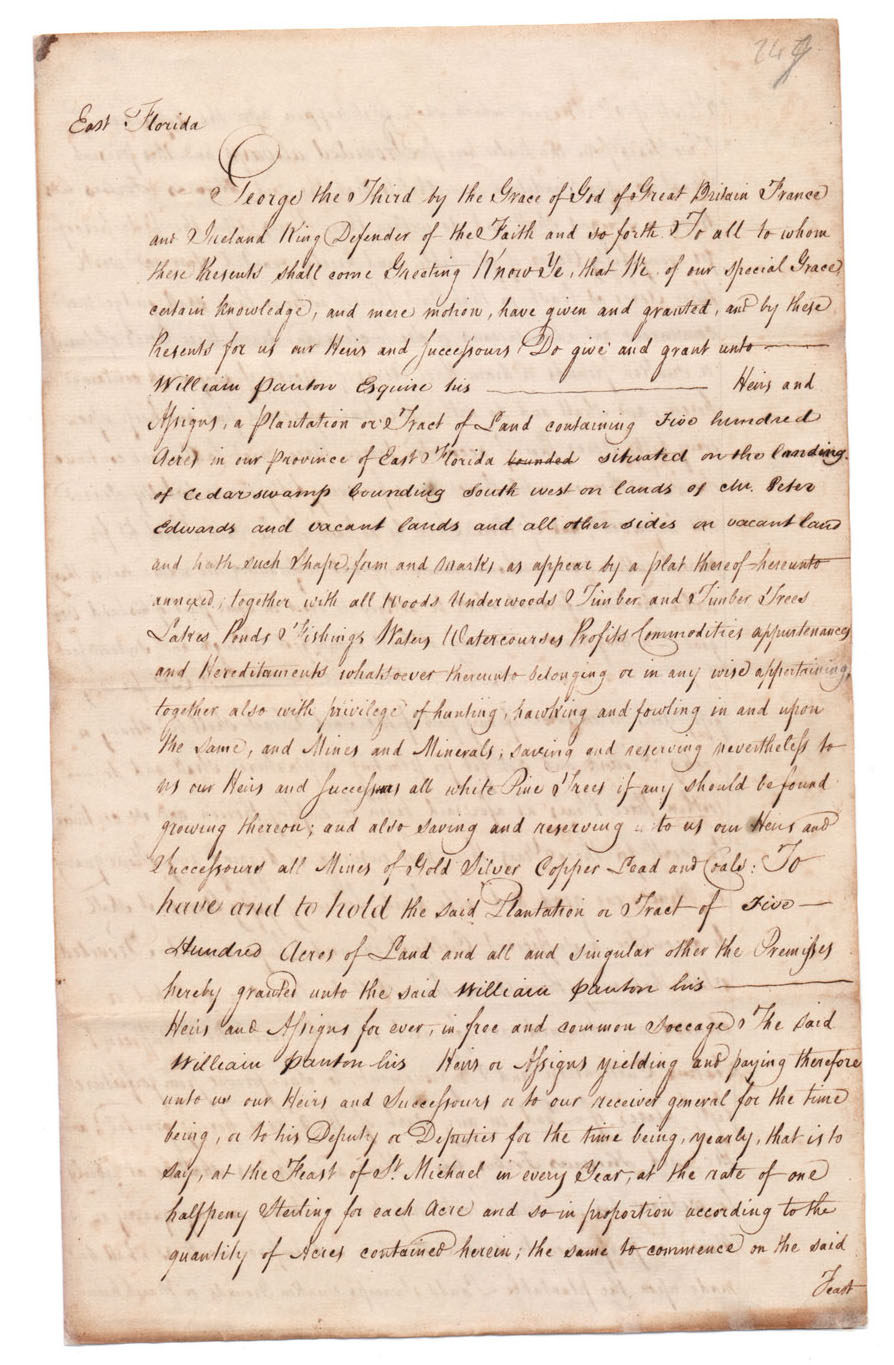 249
East Florida
George the Third by the Grace of God of Great Britain France
and Ireland King Defender of the Faith and so forth To all to whom
these Presents shall come Greeting Know Ye, that We of our special Grace
certain knowledge, and mere motion, have given and granted, and by these
Presents for us our Heirs and Successours Do give and grant unto
William Panton Esquire his Heirs and
Assigns, a Plantation or Tract of Land containing Five hundred
Acres in our Province of East Florida bounded situated on the landing
of Cedar swamp bounding South west on lands of Mr. Peter
Edwards and vacant lands and all other sides on vacant land
and hath such Shape, form and marks, as appear by a plat thereof hereunto
annexed; together with all Woods Underwoods Timber and Timber Trees
Lakes Ponds Fishings Waters Watercourses Profits Commodities appurtenances
and Hereditaments whatsoever thereunto belonging or in any wise appertaining,
together also with privilege of hunting, hawking and fowling in and upon
the same, and Mines and Minerals; saving and reserving nevertheless to
us our Heirs and Successours all white Pine Trees if any should be found
growing thereon; and also saving and reserving to us our Heirs and
Successours all Mines of Gold Silver Copper Lead and Coals: To
have and to hold the said Plantation or Tract of Five
Hundred Acres of Land and all and singular other the Premisses
hereby granted unto the said William Panton his
Heirs and Assigns for ever, in free and common Soccage The said
William Panton his Heirs or Assigns yielding and paying therefore
unto us our Heirs and Successours or to our receiver general for the time
being, or to his Deputy or Deputies for the time being, yearly, that is to
say, at the Feast of St. Michael in every Year, at the rate of one
halfpeny Sterling for each Acre and so in proportion according to the
quantity of Acres contained herein; the same to commence on the said
Feast